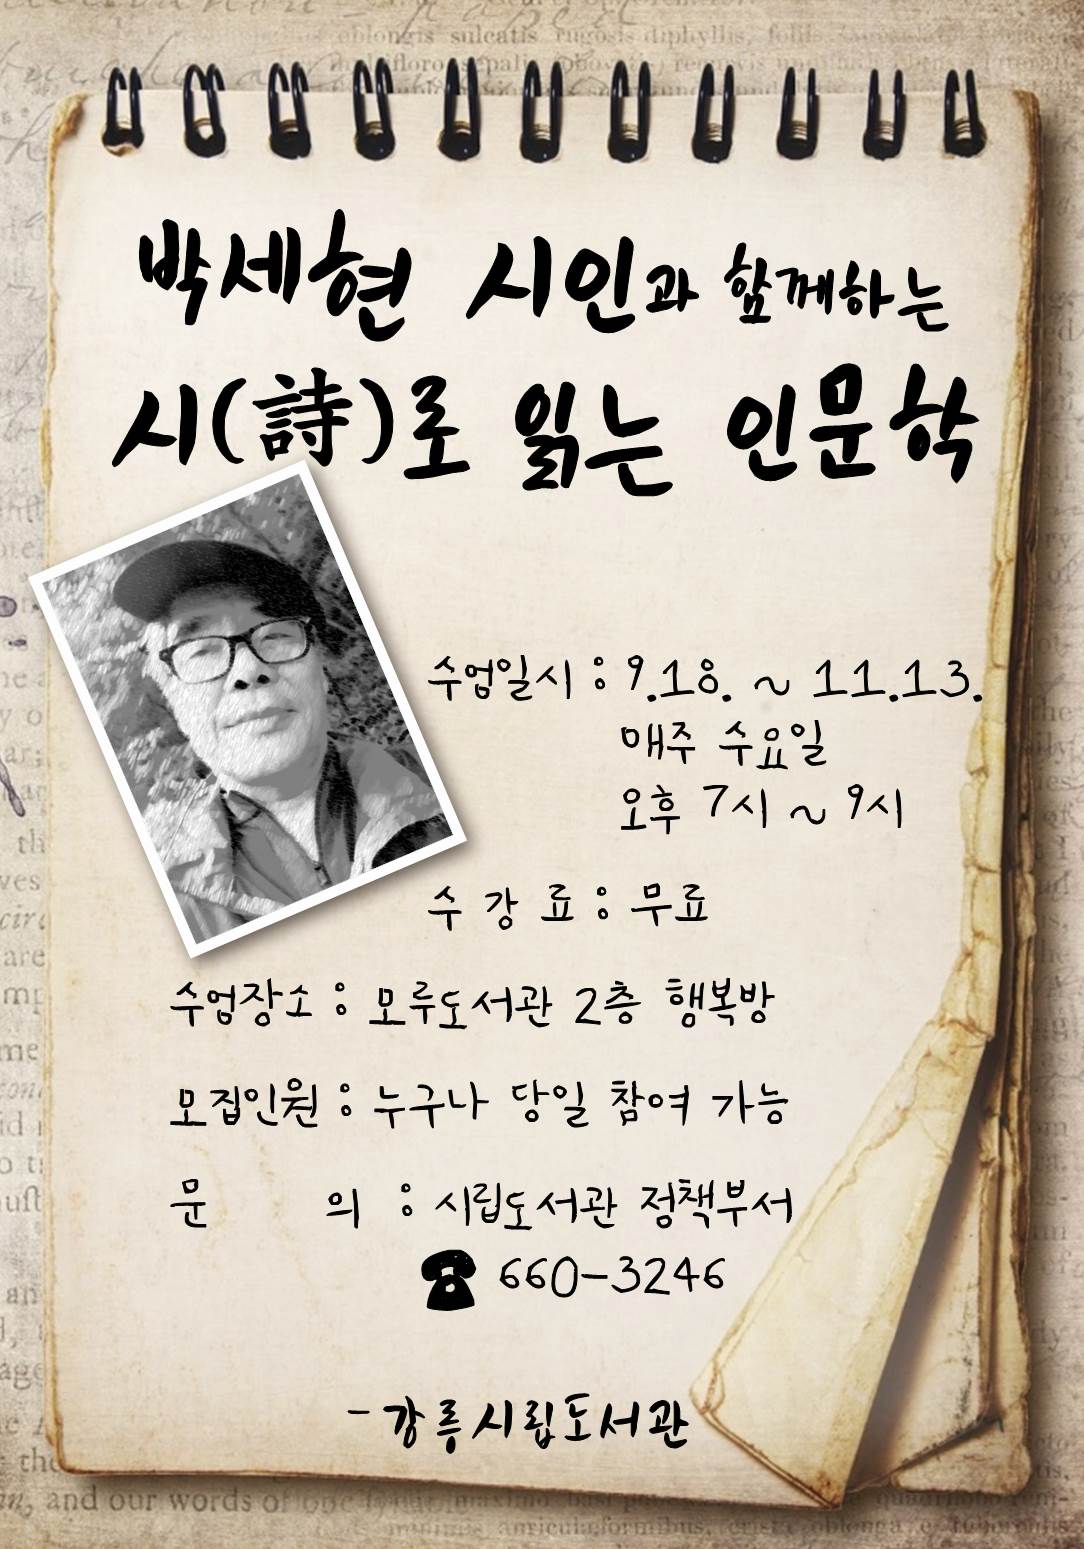 박세현 시인과 함께하는
시(詩)로 읽는 인문학
수업일시 : 9.18. ~ 11.13.
매주 수요일
오후 7시 ~ 9시
수 강 료 : 무료
수업장소 : 모루도서관 2층 행복방
모집인원 : 누구나 당일 참여 가능
문 의 : 시립도서관 정책부서
☎ 660-3246
- 강릉시립도서관
and our words of